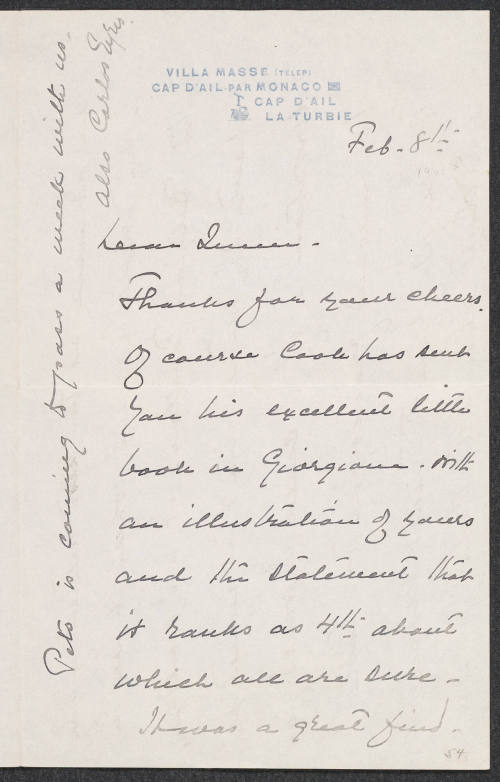 VILLA MASSE (TELEP)
CAP D'AIL PAR MONACO
CAP D'AIL
LA TURBIE
Feb. 8th
Dear
Thanks for your cheers.
Of course Cook has sent
you his excellent little
book in Giorgione. With
an illustration of yours
and the statement that
it ranks as 4th about
which all are sure.
It was a great find.
54
is coming to pass a week with us.
also Carlos